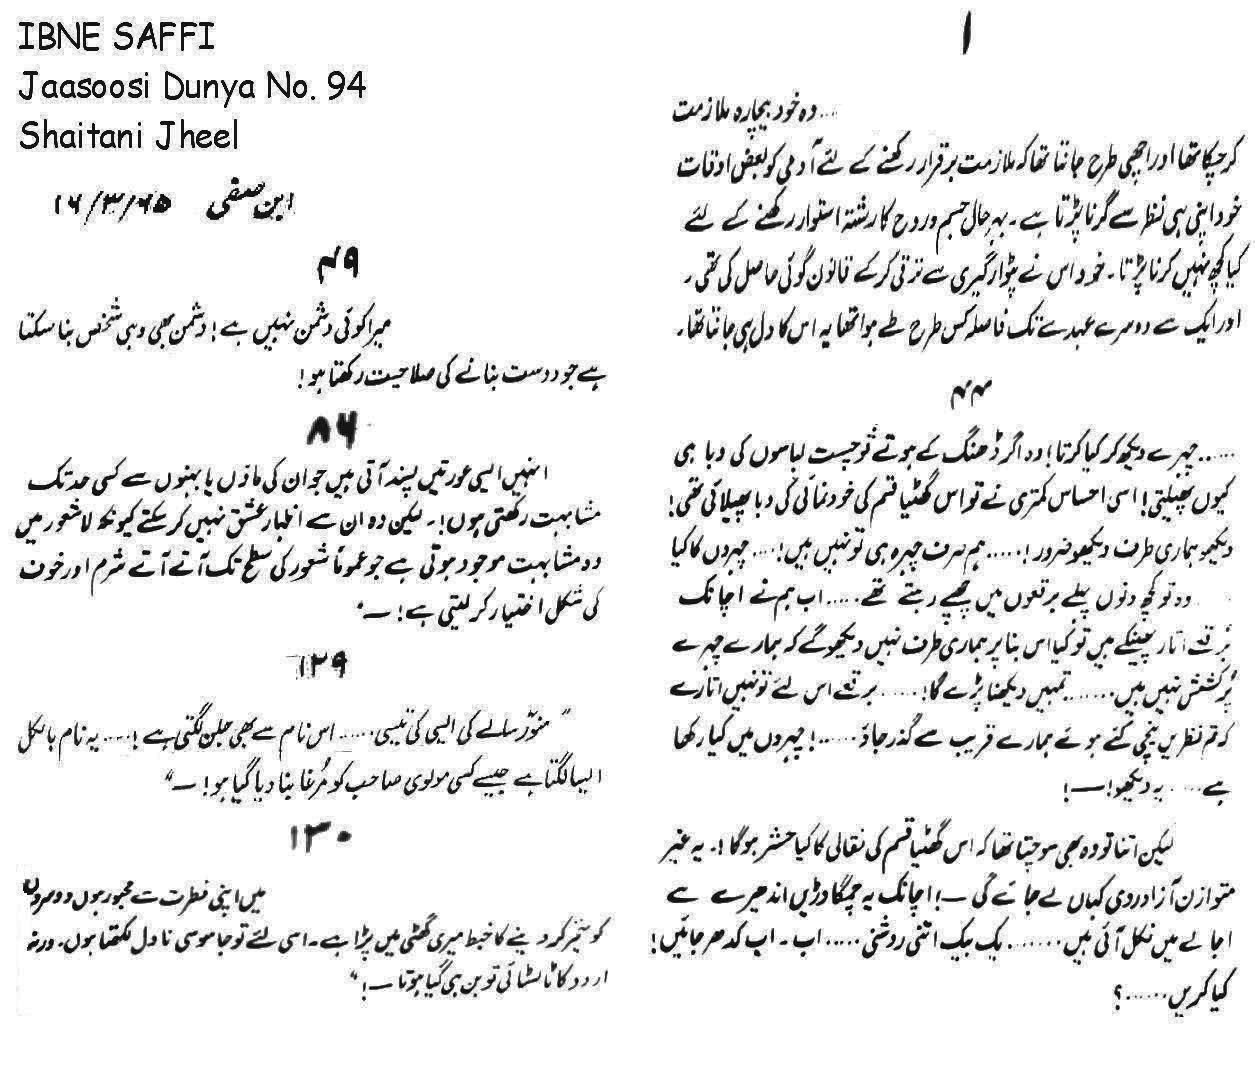 IBNE SAFFI
Jaasoosi Dunya No. 94
Shaitani Jheel
ابن صفی ۱۶/۳/۶۵
۴۹
میرا کوئی دشمن نہیں ہے! دشمن بھی وہی شخص بنا سکتا
ہے جو دوست بنانے کی صلاحیت رکھتا ہو!
۸۶
انہیں ایسی عورتیں پسند آتی ہیں جو ان کی ماؤں یا بہنوں سے کسی حد تک
مشابہت رکھتی ہوں!۔ لیکن وہ ان سے اظہار عشق نہیں کر سکتے کیونکہ لاشعور میں
وہ مشابہت موجود ہوتی ہے جو عموماً شعور کی سطح تک آتے آتے شرم اور خوف
کی شکل اختیار کر لیتی ہے!۔"
۱۲۹
"منوّر سالے کی ایسی کی تیسی...... اس نام سے بھی جلن لگتی ہے!.... یہ نام بالکل
ایسا لگتا ہے جیسے کسی مولوی صاحب کو مُرغا بنا دیا گیا ہو!۔"
۱۳۰
میں اپنی فطرت سے مجبور ہوں دوسروں
کو متحیر کر دینے کا خبط میری گھٹی میں پڑا ہے۔ اسی لئے تو جاسوسی ناول لکھتا ہوں۔ ورنہ
اردو کا ٹالسٹائی تو بن ہی گیا ہوتا۔!"
۱
... وہ خود بیچارہ ملازمت
کر چکا تھا اور اچھی طرح جانتا تھا کہ ملازمت برقرار رکھنے کے لئے آدمی کو بعض اوقات
خود اپنی ہی نظر سے گرنا پڑتا ہے۔ بہرحال جسم و روح کا رشتہ استوار رکھنے کے لئے
کیا کچھ نہیں کرنا پڑتا۔ خود اس نے پٹوارگیری سے ترقی کر کے قانون گوئی حاصل کی تھی۔
اور ایک سے دوسرے عہدے تک فاصلہ کس طرح طے ہوا تھا یہ اس کا دل ہی جانتا تھا۔
۴۴
..... چہرے دیکھ کر کیا کرتا! وہ اگر ڈھنگ کے ہوتے تو چست لباسوں کی وبا ہی
کیوں پھیلتی! اسی احساس کمتری نے تو اس گھٹیا قسم کی خود نمائی کی وبا پھیلائی تھی!
دیکھو ہماری طرف دیکھو ضرور!..... ہم صرف چہرہ ہی تو نہیں ہیں!.... چہروں کا کیا
وہ تو کچھ دنوں پہلے برقعوں میں چھپے رہتے تھے..... اب ہم نے اچانک
بُرقعے اتار پھینکے ہیں تو کیا اس بنا پر ہماری طرف نہیں دیکھو گے کہ ہمارے چہرے
پُرکشش نہیں ہیں....... تمہیں دیکھنا پڑے گا!...... برقعے اس لئے تو نہیں اتارے
کہ تم نظریں نیچی کئے ہوئے ہمارے قریب سے گذر جاؤ.....! چہروں میں کیا رکھا
ہے..... یہ دیکھو!۔!
لیکن اتنا تو وہ بھی سوچتا تھا کہ اس گھٹیا قسم کی نقالی کا کیا حشر ہوگا!۔ یہ غیر
متوازن آزادروی کہاں لے جائے گی۔! اچانک یہ چمگادڑیں اندھیرے سے
اجالے میں نکل آئی ہیں....... یک بیک اتنی روشنی..... اب۔ اب کدھر جائیں!
کیا کریں......؟